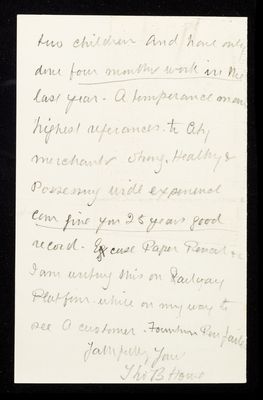 two children and have only
done four months work in the
last year. A temperance man
highest referances to City
merchants Strong, Healthy &
Possessing wide experience
can give you 25 years good
record. Excuse Paper Pencil &c
I am writing this on Railway
Platform while on my way to
see a customer. Fountain Pen fails
Faithfully Your
Thos B Howe